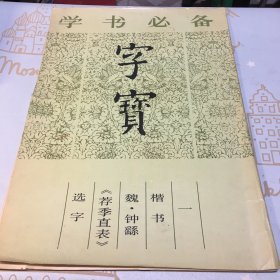 学书必备
字寶
一
楷书
魏·钟繇
《荐季直表》
选字